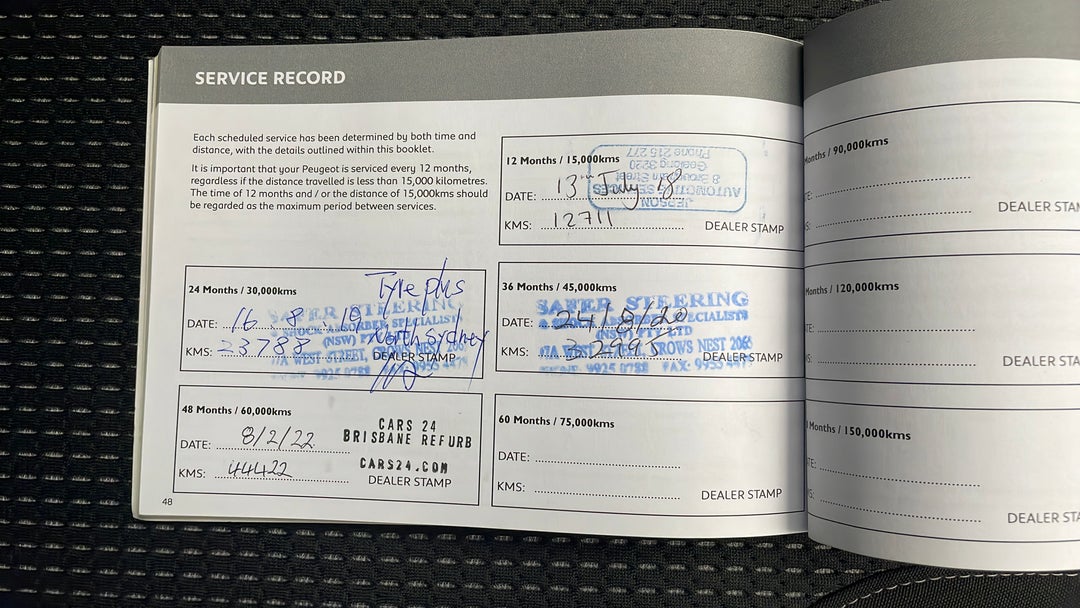 SERVICE RECORD
Each scheduled service has been determined by both time and
distance, with the details outlined within this booklet.
It is important that your Peugeot is serviced every 12 months,
regardless if the distance travelled is less than 15,000 kilometres.
The time of 12 months and / or the distance of 15,000kms should
be regarded as the maximum period between services.
12 Months / 15,000kms
JEPSON
AUTOMOTIVE SERVICES
Geelong 3220
Phone 215 277
DATE: 13th July 18
KMS: 12711
DEALER STAMP
24 Months / 30,000kms
Tyre plus
North Sydney
SAFER STEERING
& SHOCK ABSORBER SPECIALISTS
(NSW)
WEST STREET,
DATE: 16.8.19
KMS: 23788
DEALER STAMP
36 Months / 45,000kms
SAFER STEERING
& SHOCK ABSORBER SPECIALISTS
(NSW) PTY LTD
WEST STREET, CROWS NEST 206
DATE: 24/8/20
KMS: 32995
DEALER STAMP
48 Months / 60,000kms
CARS 24
BRISBANE REFURB
CARS24.COM
DATE: 8/2/22
KMS: 44422
DEALER STAMP
60 Months / 75,000kms
DATE:
KMS:
DEALER STAMP
48
Months / 90,000kms
DEALER STA
Months / 120,000kms
DEALER STA
Months / 150,000kms
DEALER STA